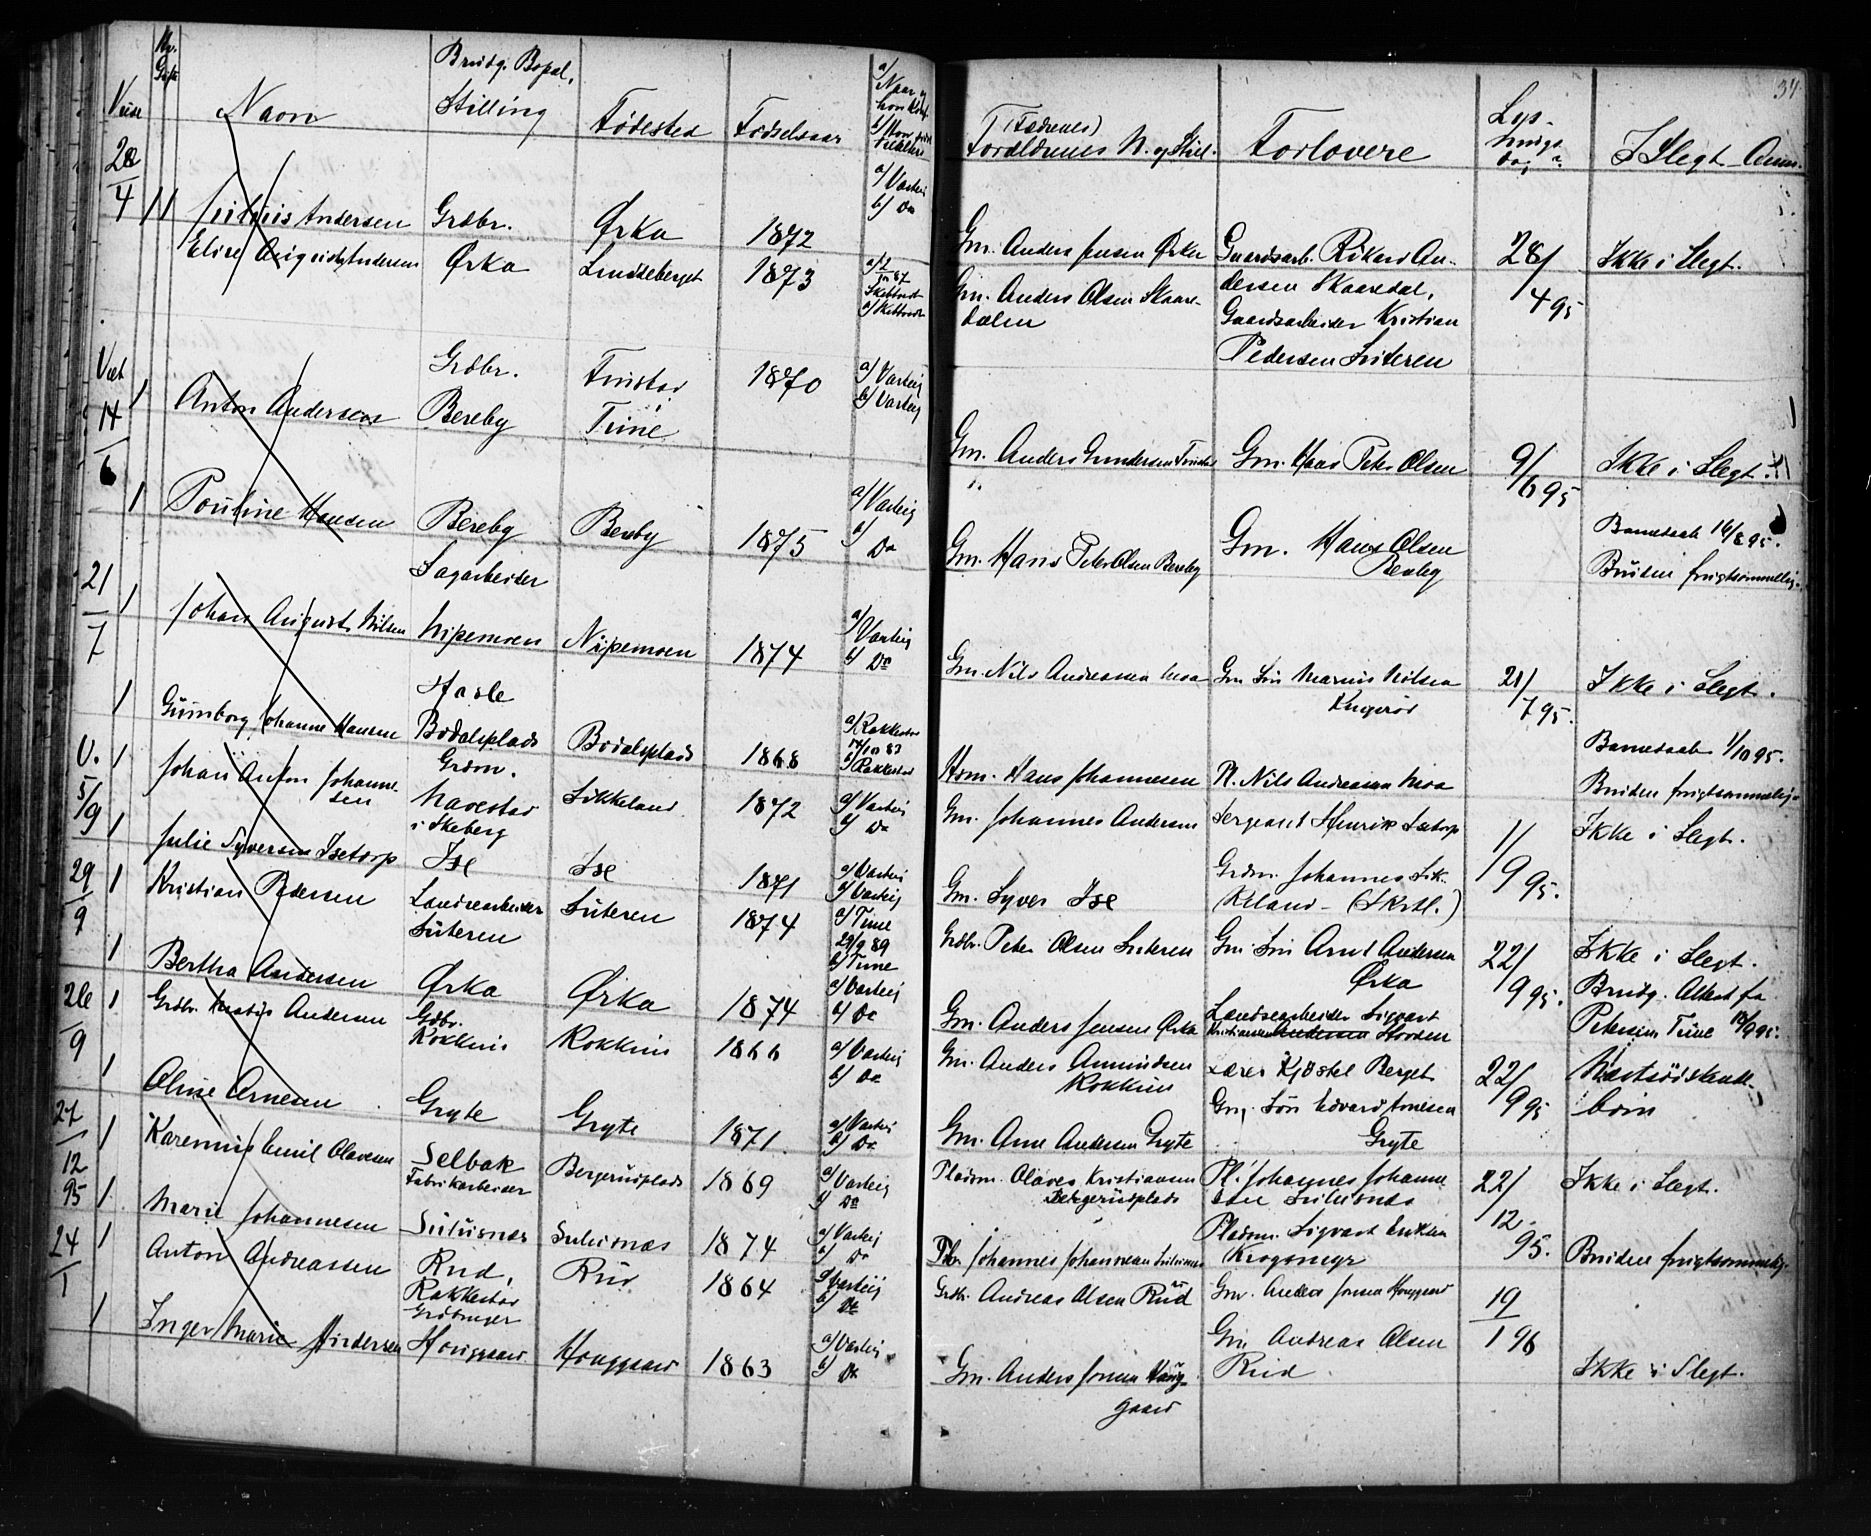 34
Navn
Brudg. Bopæl,
Stilling
Fødested
Fødselsaar
(Fædrenes)
Forældrenes N. og Still.
Forlovere
Lys-
nings
dag
I Slegt Anm.
28
4
Julius Andersen Grdbr. Ørka 1872 a/ Varteig b/ Do
Gm. Anders Jensen Ørka Gaardsarb. Rikard An- 28/4 95 Ikke i Slegt.
Elise Augusta Andersen Ørka Lundeberget 1873
Gm. Anders Olsen Skaare- dersen Skaaredal,
dalen Gaardsarbeider Kristian
Pedersen Suteren
14
6
Anton Andersen Grdbr. Bereby Finstad Tune 1870 a/ Varteig b/ Varteig
Gm. Anders Gundersen Finstad Gm. Hans Peter Olsen 9/6 95 Ikke i Slegt.
Pauline Hansen Bereby Bereby 1875 a/ Varteig b/ Do
Gm. Hans Peter Olsen Bereby Gm. Hans Olsen Bereby
Barnedaab 16/8 95.
Bruden frugtsommelig.
21
7
Johan August Nilsen Sagarbeider Nipemoen Nipemoen 1874 a/ Varteig b/ Do
Gm. Nils Andreasen Moa Gm. Søn Marius Nilsen 21/7 95. Ikke i Slegt.
Gunborg Johanne Hansen Hasle Bødalsplads Bødalsplads 1868 a/ Rakkestad 14/10 83 b/ Rakkestad
Hsm. Hans Johannesen Pl. Nils Andreasen Moa
Barnedaab 1/10 95.
Bruden frugtsommelig.
5/9
Johan Anton Johanne-
sen Grdm. Navestad i Skeberg Sikkeland 1872 a/ Varteig b/ Do
Gm. Johannes Andersen Sergeant Henrik Isetorp 1/9 95. Ikke i Slegt.
Julie Syversen Isetorp Ise Ise 1871 a/ Varteig
Gm. Syver Ise Grdm. Johannes Sik-
keland
29
9
Kristian Pedersen Landsearbeider Suteren Suteren 1874 a/ Tune 29/9 89 b/ Tune
Grdbr. Peter Olsen Suteren Gm. Søn Arnt Andersen Ørka 22/9 95. Ikke i Slegt.
Bertha Andersen Ørka Ørka 1874 a/ Varteig b/ Do
Gm. Anders Jensen Ørka
Brudg. Attest fa
26
9
Andersen Grdbr. Kokkim Kokkim 1866 a/ Varteig b/ Do
Gm. Anders Amundsen Kokkim Lærer Kjøstel Berget 22/9 95
Oline Arnesen Gryte Gryte 1871. a/ Varteig b/ Do
Gm. Arne Andersen Gryte Gm. Søn Edvard Arnesen Gryte
27
12
95
Karenius Emil Olavesen Selbak Fabrikarbeider Bergerudplads 1869 a/ Varteig b/ Do
Pladsm. Olaves Kristiansen Bergerudplads Pl. Johannes Johanne- 22/12 95. Ikke i Slegt.
Marie Johannesen Sulusnæs Sulusnæs 1874 a/ Varteig b/ Do
Johannes Johannesen Pladsm. Sigvart Eriksen Krogsmyr Bruden frugtsommelig.
24
1
Anton Andreassen Rud, Rakkestad Grdbruger Rud 1864 a/ Varteig b/ Do
Grdbr. Andreas Olsen Rud Gm. Anders Jonsen Houggaard 19/1 96
Inger Marie Andersen Houggaard Houggaard 1863 a/ Varteig b/ Do
Gm. Anders Jonsen Houg-
gaard Gm. Andreas Olsen Rud Ikke i Slegt.